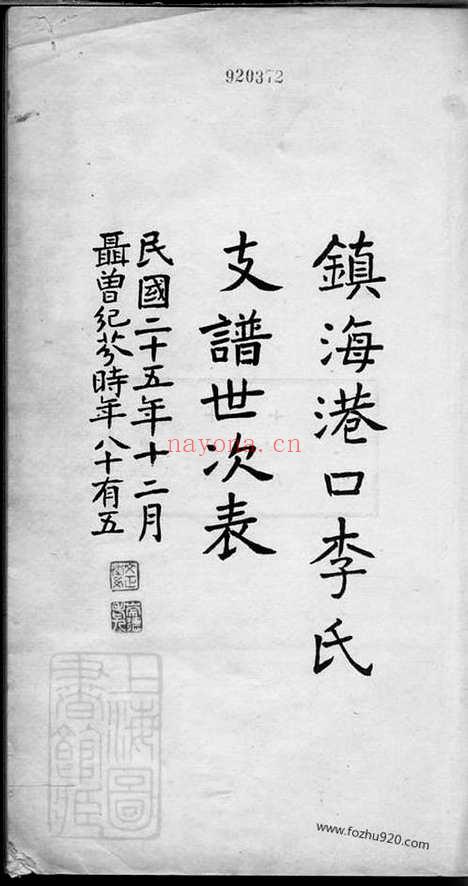 920372
鎮海港口李氏
支譜世次表
民國二十五年十二月
聶曾紀芬時年八十有五
nayona.cn
上海圖
書館藏
www.fozhu920.com